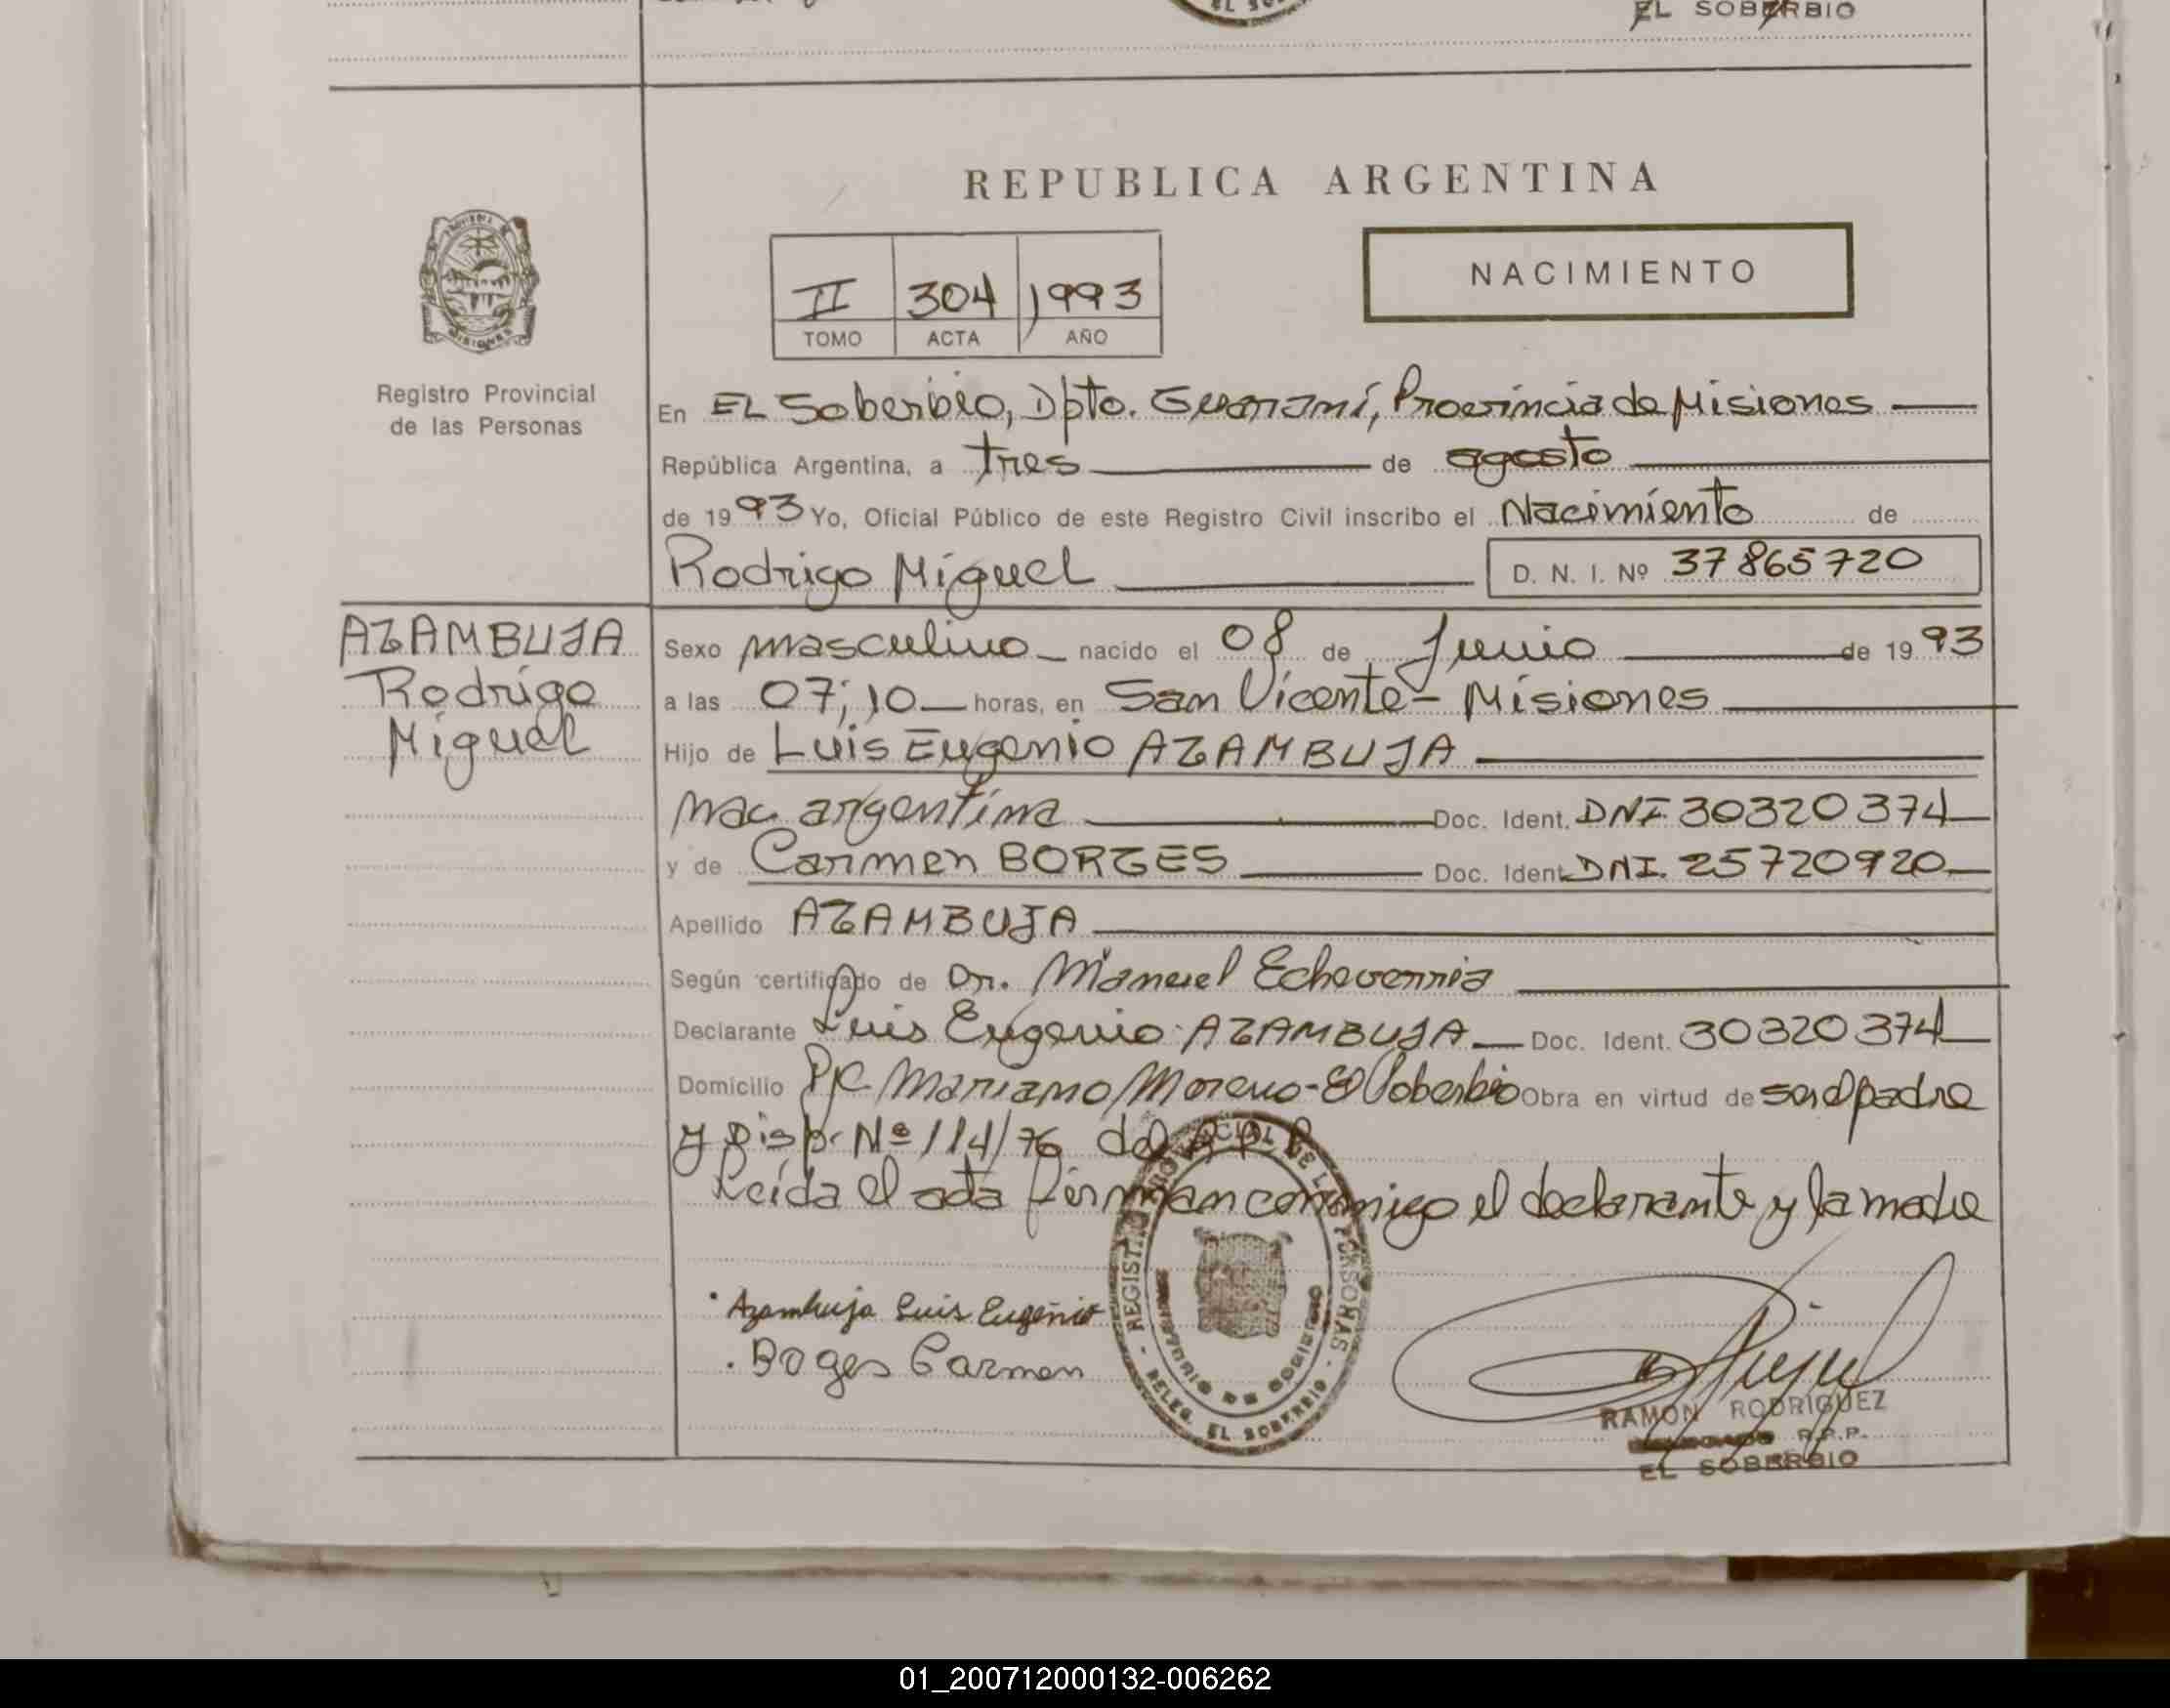 EL SOBERBIO
REPUBLICA ARGENTINA
NACIMIENTO
II 304 1993
TOMO ACTA AÑO
Registro Provincial
de las Personas
En EL Soberbio, Dpto. Guaraní, Provincia de Misiones
República Argentina, a tres de agosto
de 1993 Yo, Oficial Público de este Registro Civil inscribo el Nacimiento de
Rodrigo Miguel D. N. I. Nº 37865720
AZAMBUJA
Rodrigo
Miguel
Sexo masculino nacido el 08 de Junio de 1993
a las 07;10 horas, en San Vicente - Misiones
Hijo de Luis Eugenio AZAMBUJA
nac argentina Doc. Ident. DNI 30320374
y de Carmen BORGES Doc. Ident DNI. 25720920
Apellido AZAMBUJA
Según certificado de Dr. Manuel Echeverria
Declarante Luis Eugenio AZAMBUJA Doc. Ident. 30320374
Domicilio Pje Mariano Moreno - El Soberbio Obra en virtud de ser el padre
y Disp. Nº 114/76 del R P P
Leída el acta firman conmigo el declarante y la madre
Azambuja Luis Eugenio
Boges Carmen
REGISTRO PROVINCIAL DE LAS PERSONAS
MINISTERIO DE GOBIERNO
DELEG. EL SOBERBIO
RAMON RODRIGUEZ
R.P.P.
EL SOBERBIO
01_200712000132-006262